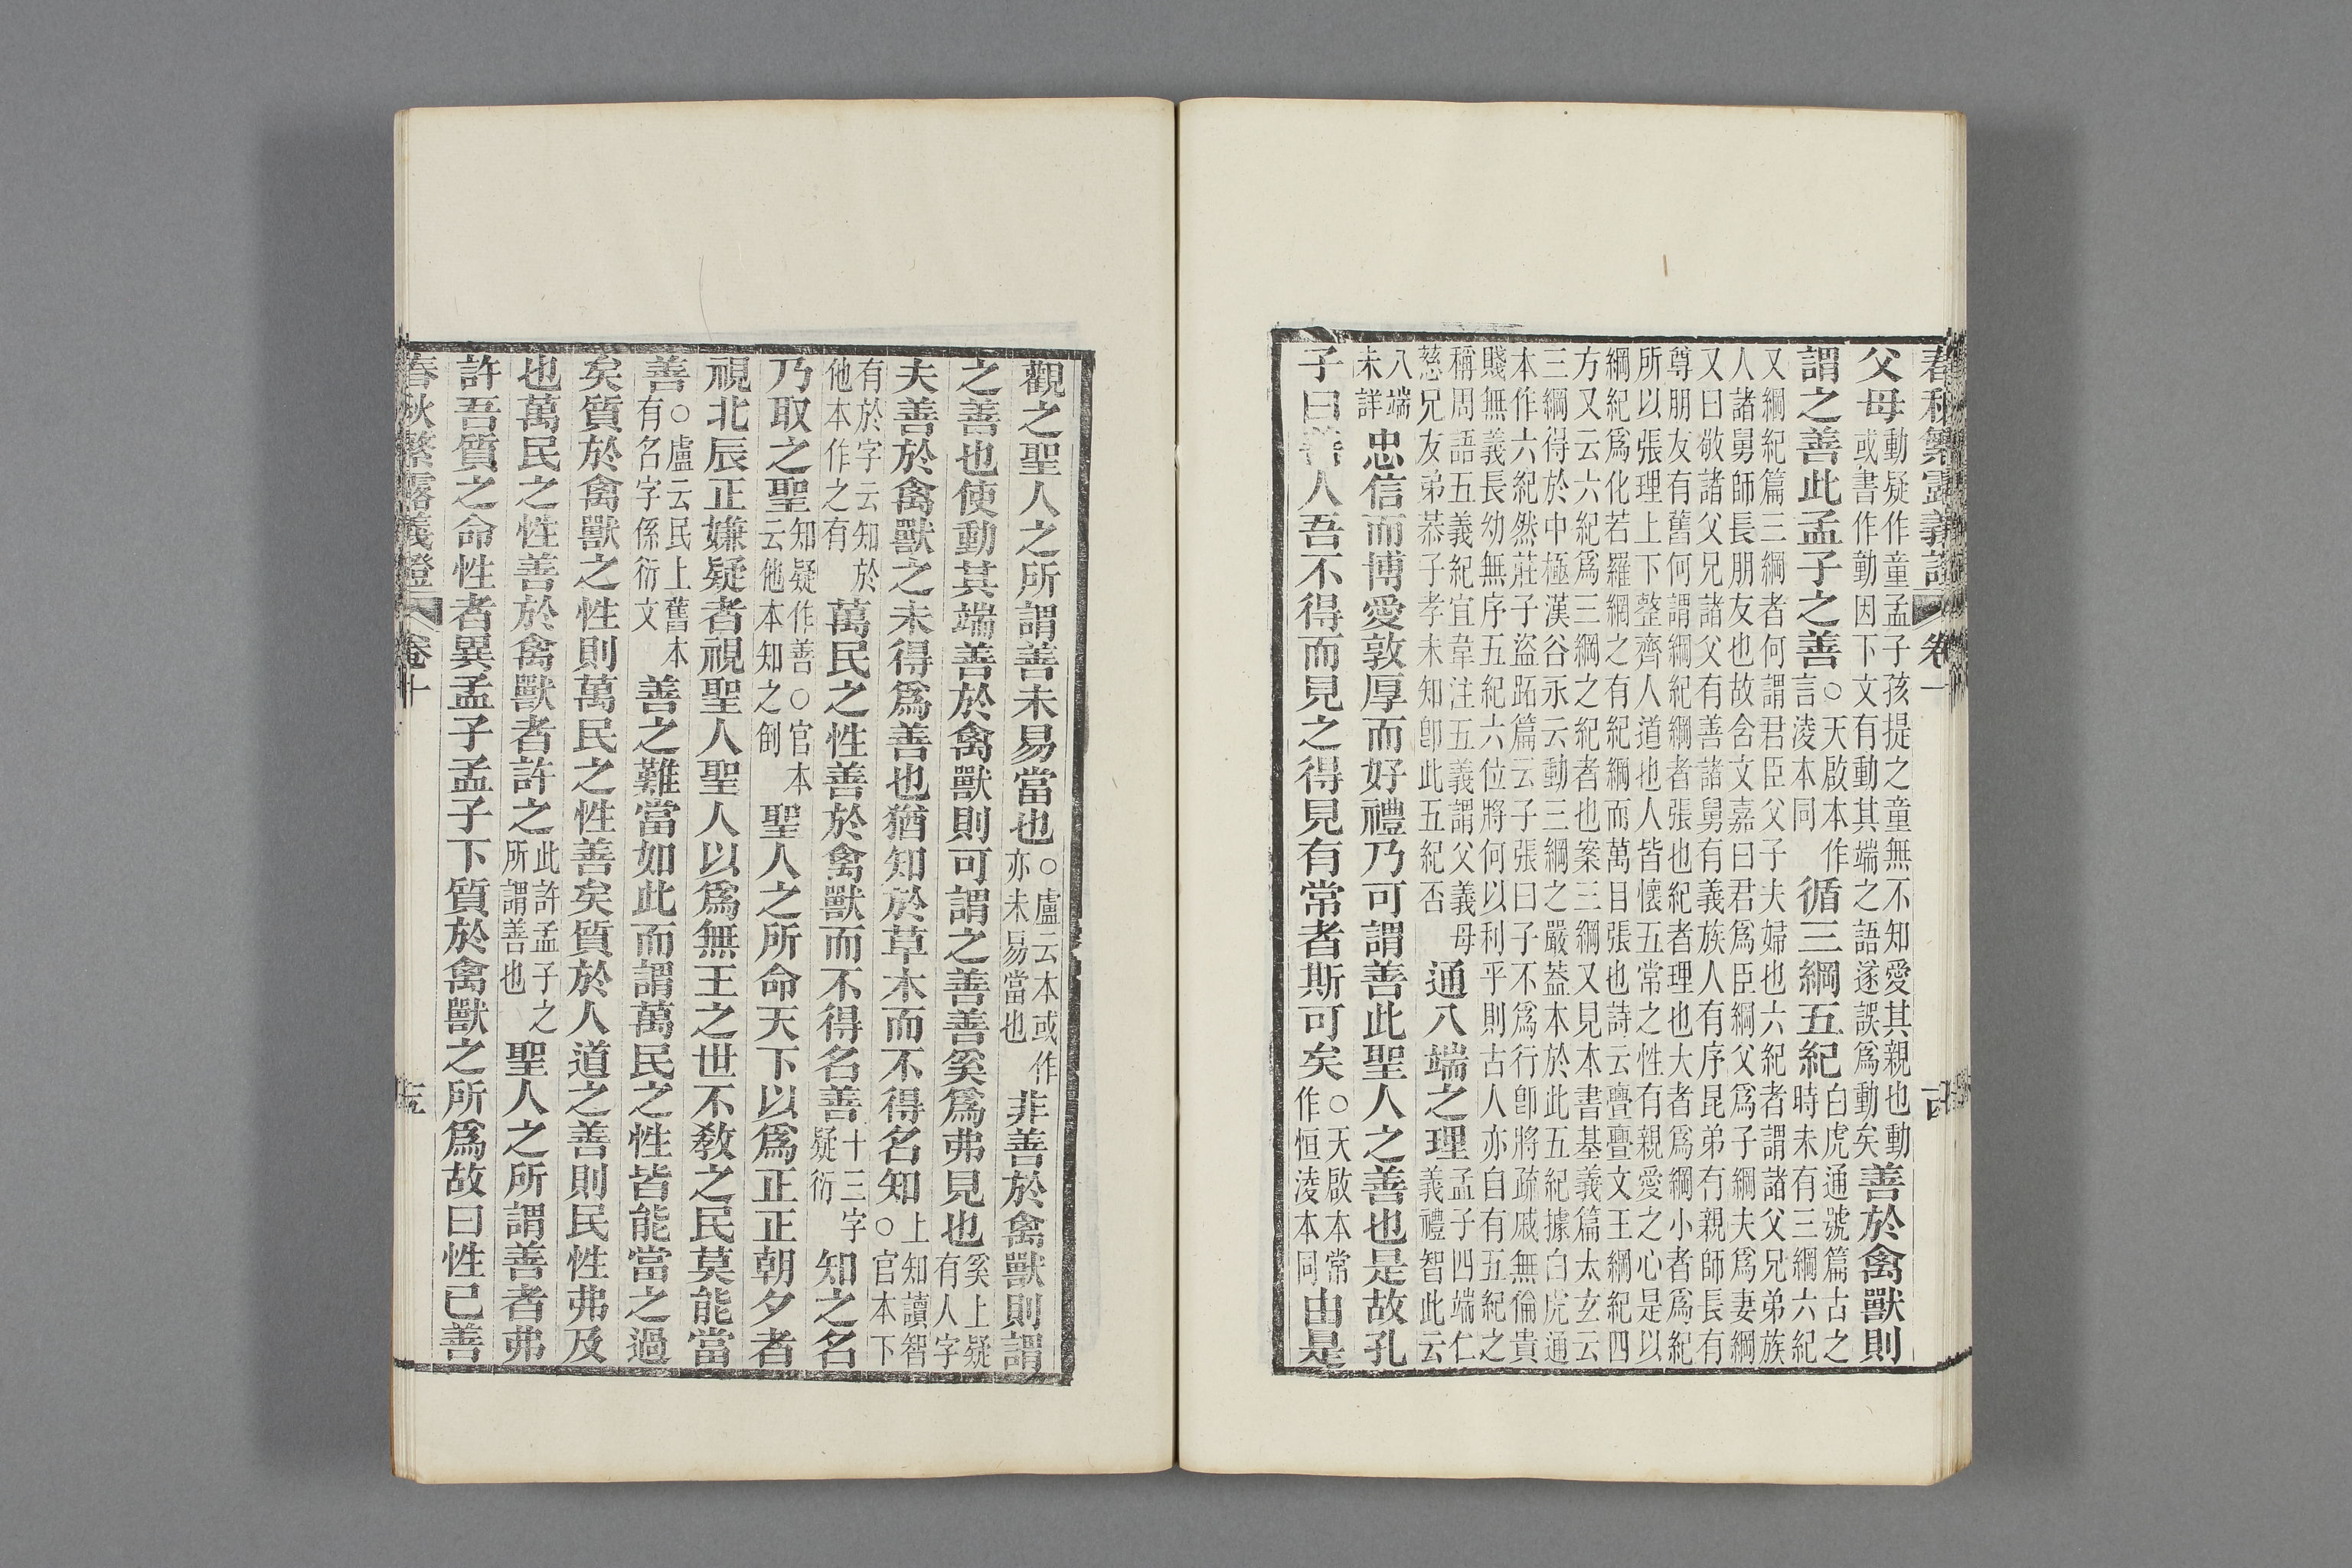 春秋繁露義證 卷
父母動疑作童孟子孩提之童無不知愛其親也動或書作勤因下文有動其端之語遂誤爲動矣善於禽獸則
謂之善此孟子之善○天啟本作言凌本同循三綱五紀白虎通號篇古之時未有三綱六紀
又綱紀篇三綱者何謂君臣父子夫婦也六紀者謂諸父兄弟族
人諸舅師長朋友也故含文嘉曰君爲臣綱父爲子綱夫爲妻綱
又曰敬諸父兄諸父有善諸舅有義族人有序昆弟有親師長有
尊朋友有舊何謂綱紀綱者張也紀者理也大者爲綱小者爲紀
所以張理上下整齊人道也人皆懷五常之性有親愛之心是以
綱紀爲化若羅網之有紀綱而萬目張也詩云亹亹文王綱紀四
方又云六紀爲三綱之紀者也案三綱又見本書基義篇太玄云
三綱得於中極漢谷永云動三綱之嚴葢本於此五紀據白虎通
本作六紀然莊子盜跖篇云子張曰子不爲行卽將疏戚無倫貴
賤無義長幼無序五紀六位將何以利乎則古人亦自有五紀之
稱周語五義紀宜韋注五義謂父義母慈兄友弟恭子孝未知卽此五紀否通八端之理孟子四端仁義禮智此云
八端未詳忠信而博愛敦厚而好禮乃可謂善此聖人之善也是故孔
子曰善人吾不得而見之得見有常者斯可矣○天啟本常作恒凌本同由是
觀之聖人之所謂善未易當也○盧云本或作亦未易當也非善於禽獸則謂
之善也使動其端善於禽獸則可謂之善善奚爲弗見也奚上疑有人字
夫善於禽獸之未得爲善也猶知於草木而不得名知上知讀智○官本下
有於字云知於他本作之有萬民之性善於禽獸而不得名善十三字疑衍知之名
乃取之聖知疑作善○官本云他本知之倒聖人之所命天下以爲正正朝夕者
視北辰正嫌疑者視聖人聖人以爲無王之世不敎之民莫能當
善○盧云民上舊本有名字係衍文善之難當如此而謂萬民之性皆能當之過
矣質於禽獸之性則萬民之性善矣質於人道之善則民性弗及
也萬民之性善於禽獸者許之此許孟子之所謂善也聖人之所謂善者弗
許吾質之命性者異孟子孟子下質於禽獸之所爲故曰性已善
春秋繁露義證 卷十